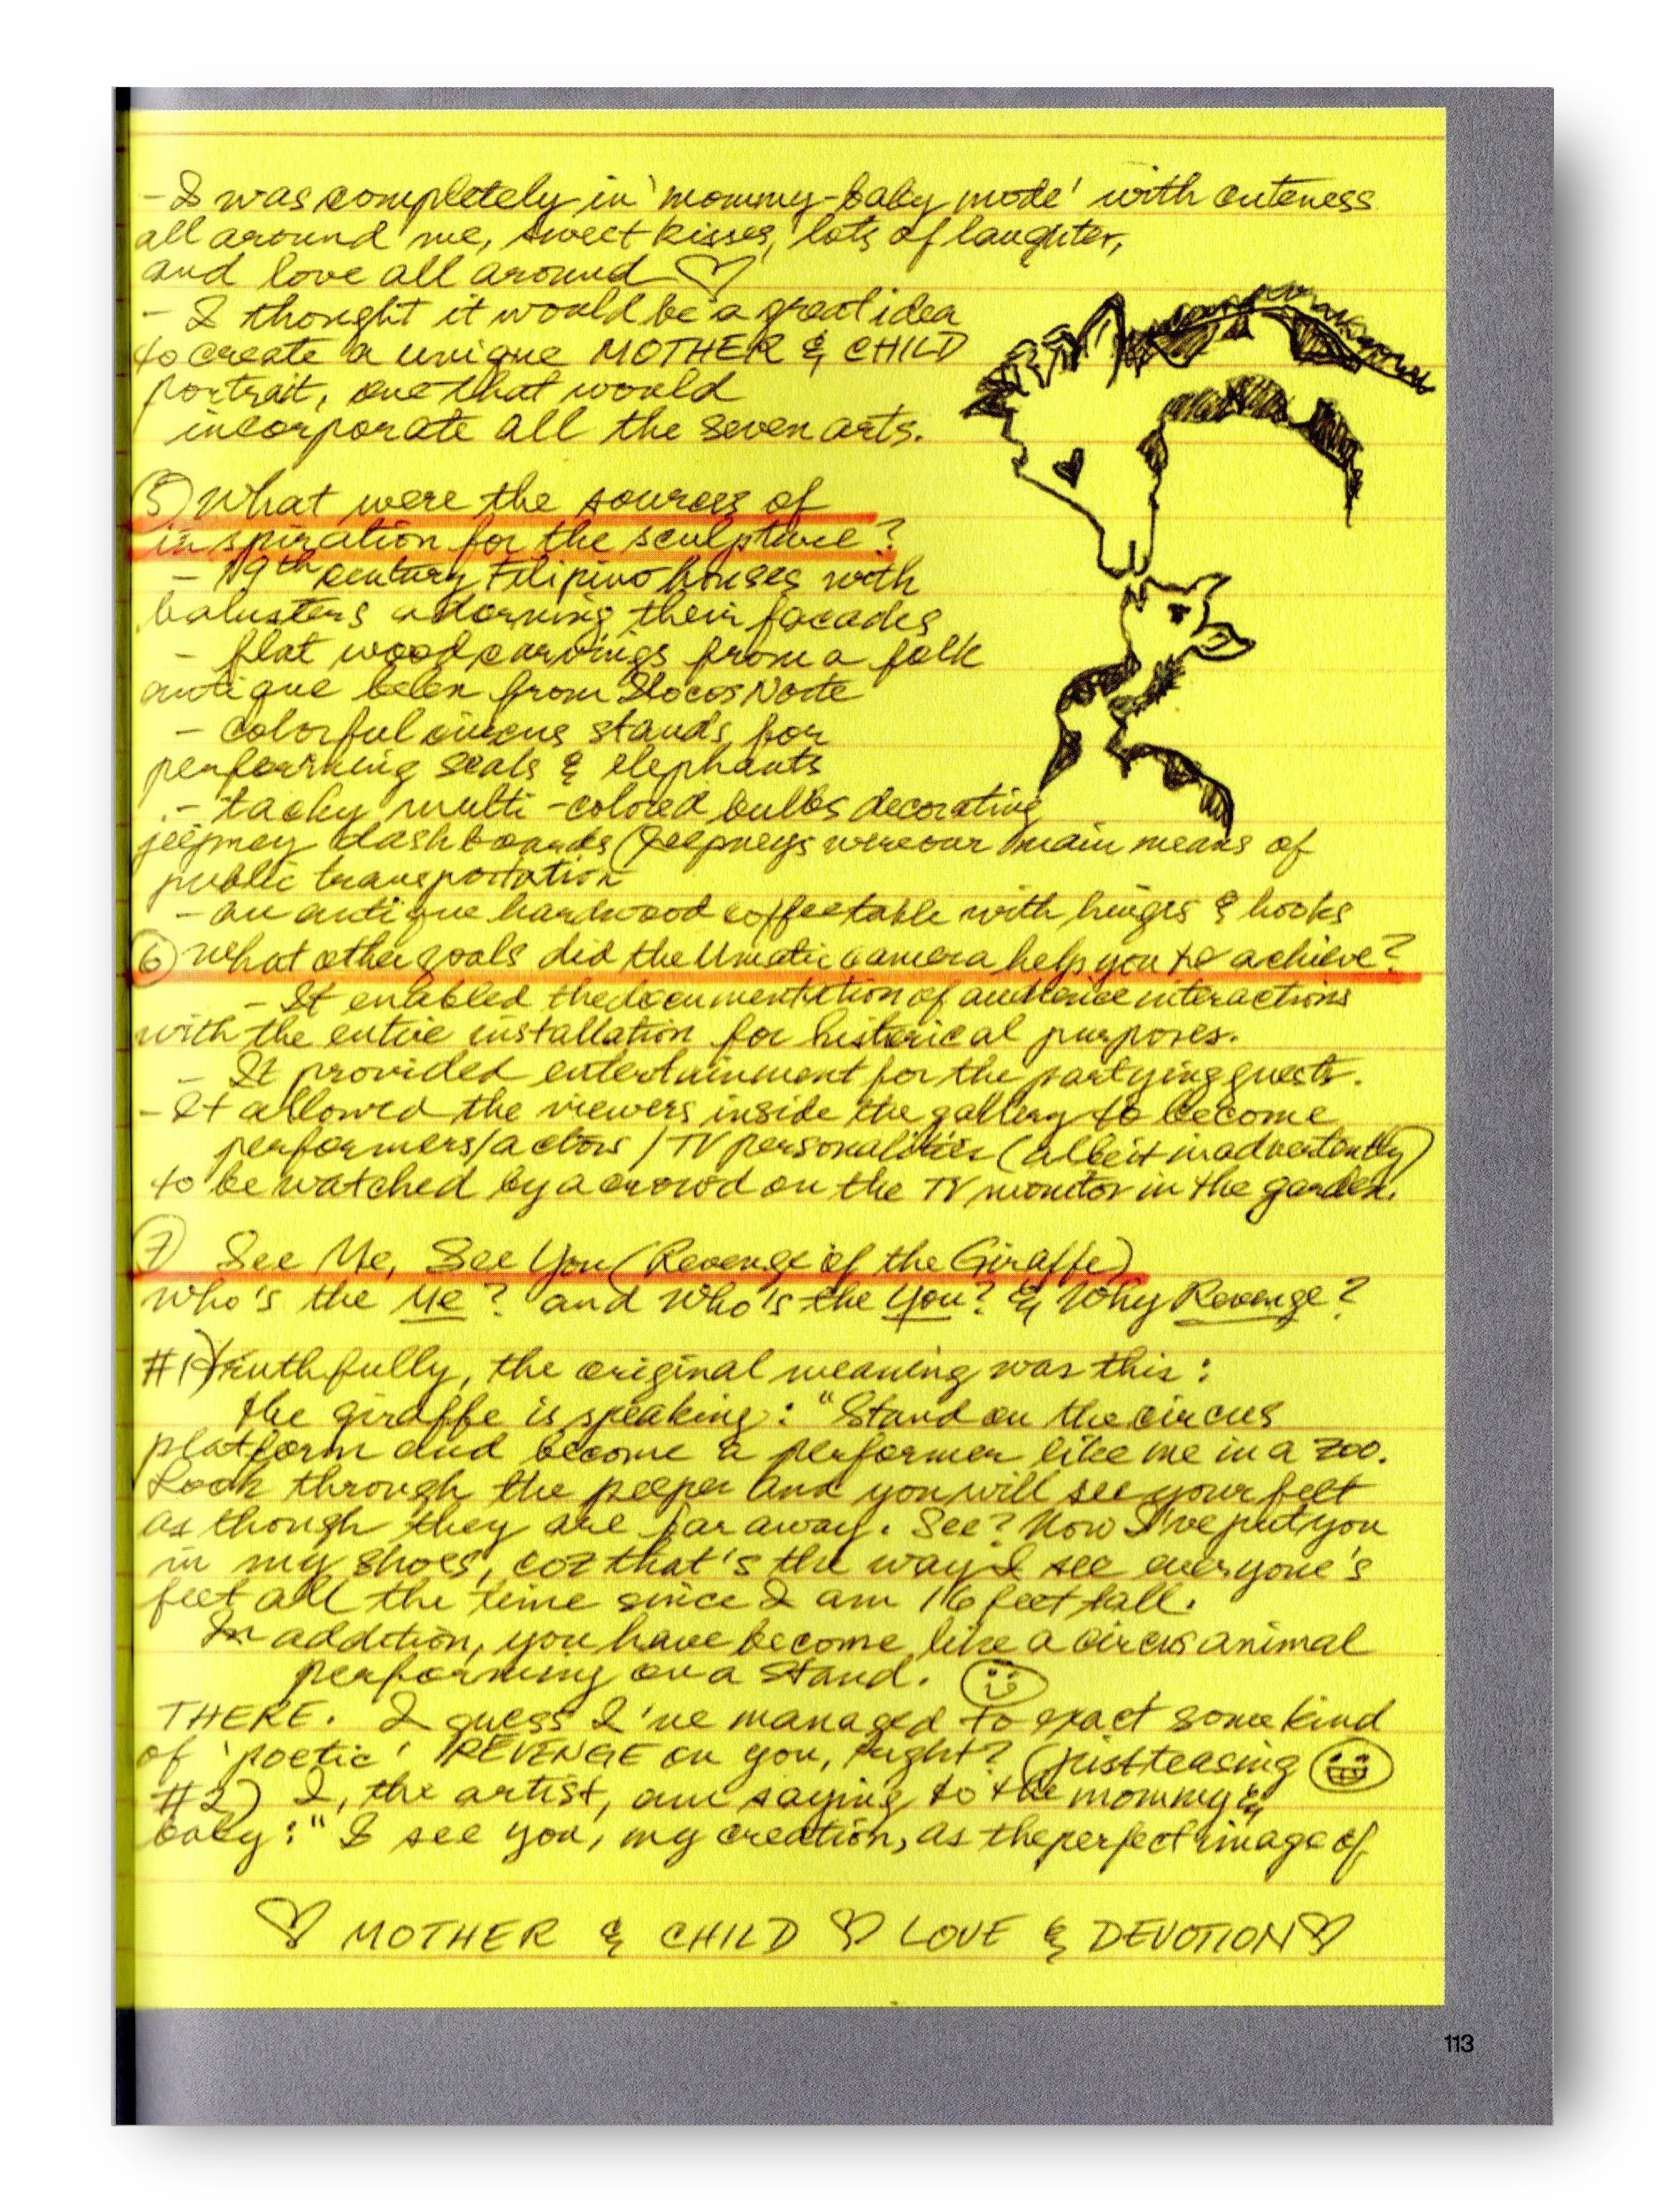 - I was completely in 'mommy-baby mode' with cuteness
all around me, sweet kisses, lots of laughter,
and love all around ♡
- I thought it would be a great idea
to create a unique MOTHER & CHILD
portrait, one that would
incorporate all the seven arts.
5) What were the sources of
inspiration for the sculpture?
- 19th century Filipino houses with
balusters adorning their facades
- flat wood carvings from a folk
antique belen from Ilocos Norte
- colorful circus stands for
performing seals & elephants
- tacky multi-colored bulbs decorating
jeepney dashboards (Jeepneys were our main means of
public transportation
- an antique hardwood coffee table with hinges & hooks
6) What other goals did the Umatic camera help you to achieve?
- It enabled the documentation of audience interactions
with the entire installation for historical purposes.
- It provided entertainment for the partying guests.
- It allowed the viewers inside the gallery to become
performers/actors / TV personalities (albeit inadvertently)
to be watched by a crowd on the TV monitor in the garden.
7) See Me, See You (Revenge of the Giraffe)
Who's the Me? and Who's the You? & Why Revenge?
#1) Truthfully, the original meaning was this:
The giraffe is speaking: "Stand on the circus
platform and become a performer like me in a zoo.
Look through the peeper and you will see your feet
as though they are far away. See? Now I've put you
in my shoes, coz that's the way I see everyone's
feet all the time since I am 16 feet tall.
In addition, you have become like a circus animal
performing on a stand. ☺
THERE. I guess I've managed to exact some kind
of 'poetic' REVENGE on you, right? (just teasing 😁
#2) I, the artist, am saying to the mommy &
baby: "I see you, my creation, as the perfect image of
♡ MOTHER & CHILD ♡ LOVE & DEVOTION ♡
113